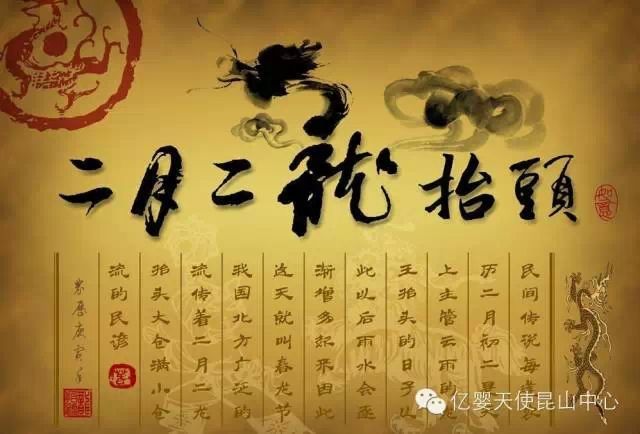 二月二龍抬頭
如意
民间传说每逢农
历二月初二是天
上主管云雨的龙
王抬头的日子从
此以后雨水会逐
渐增多起来因此
这天就叫春龙节
我国北方广泛的
流传着二月二龙
抬头大仓满小仓
流的民谚
农历庚寅年
亿婴天使昆山中心